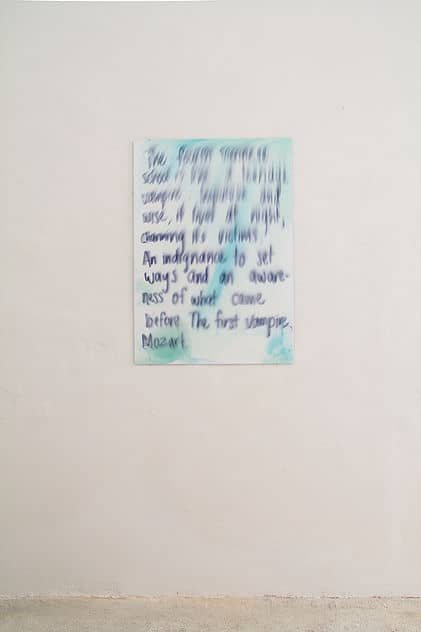 The
school
vampire, and
wise, it lives at night,
charming its victims.
An indignance to set
ways and an aware-
ness of what came
before The first vampire,
Mozart.